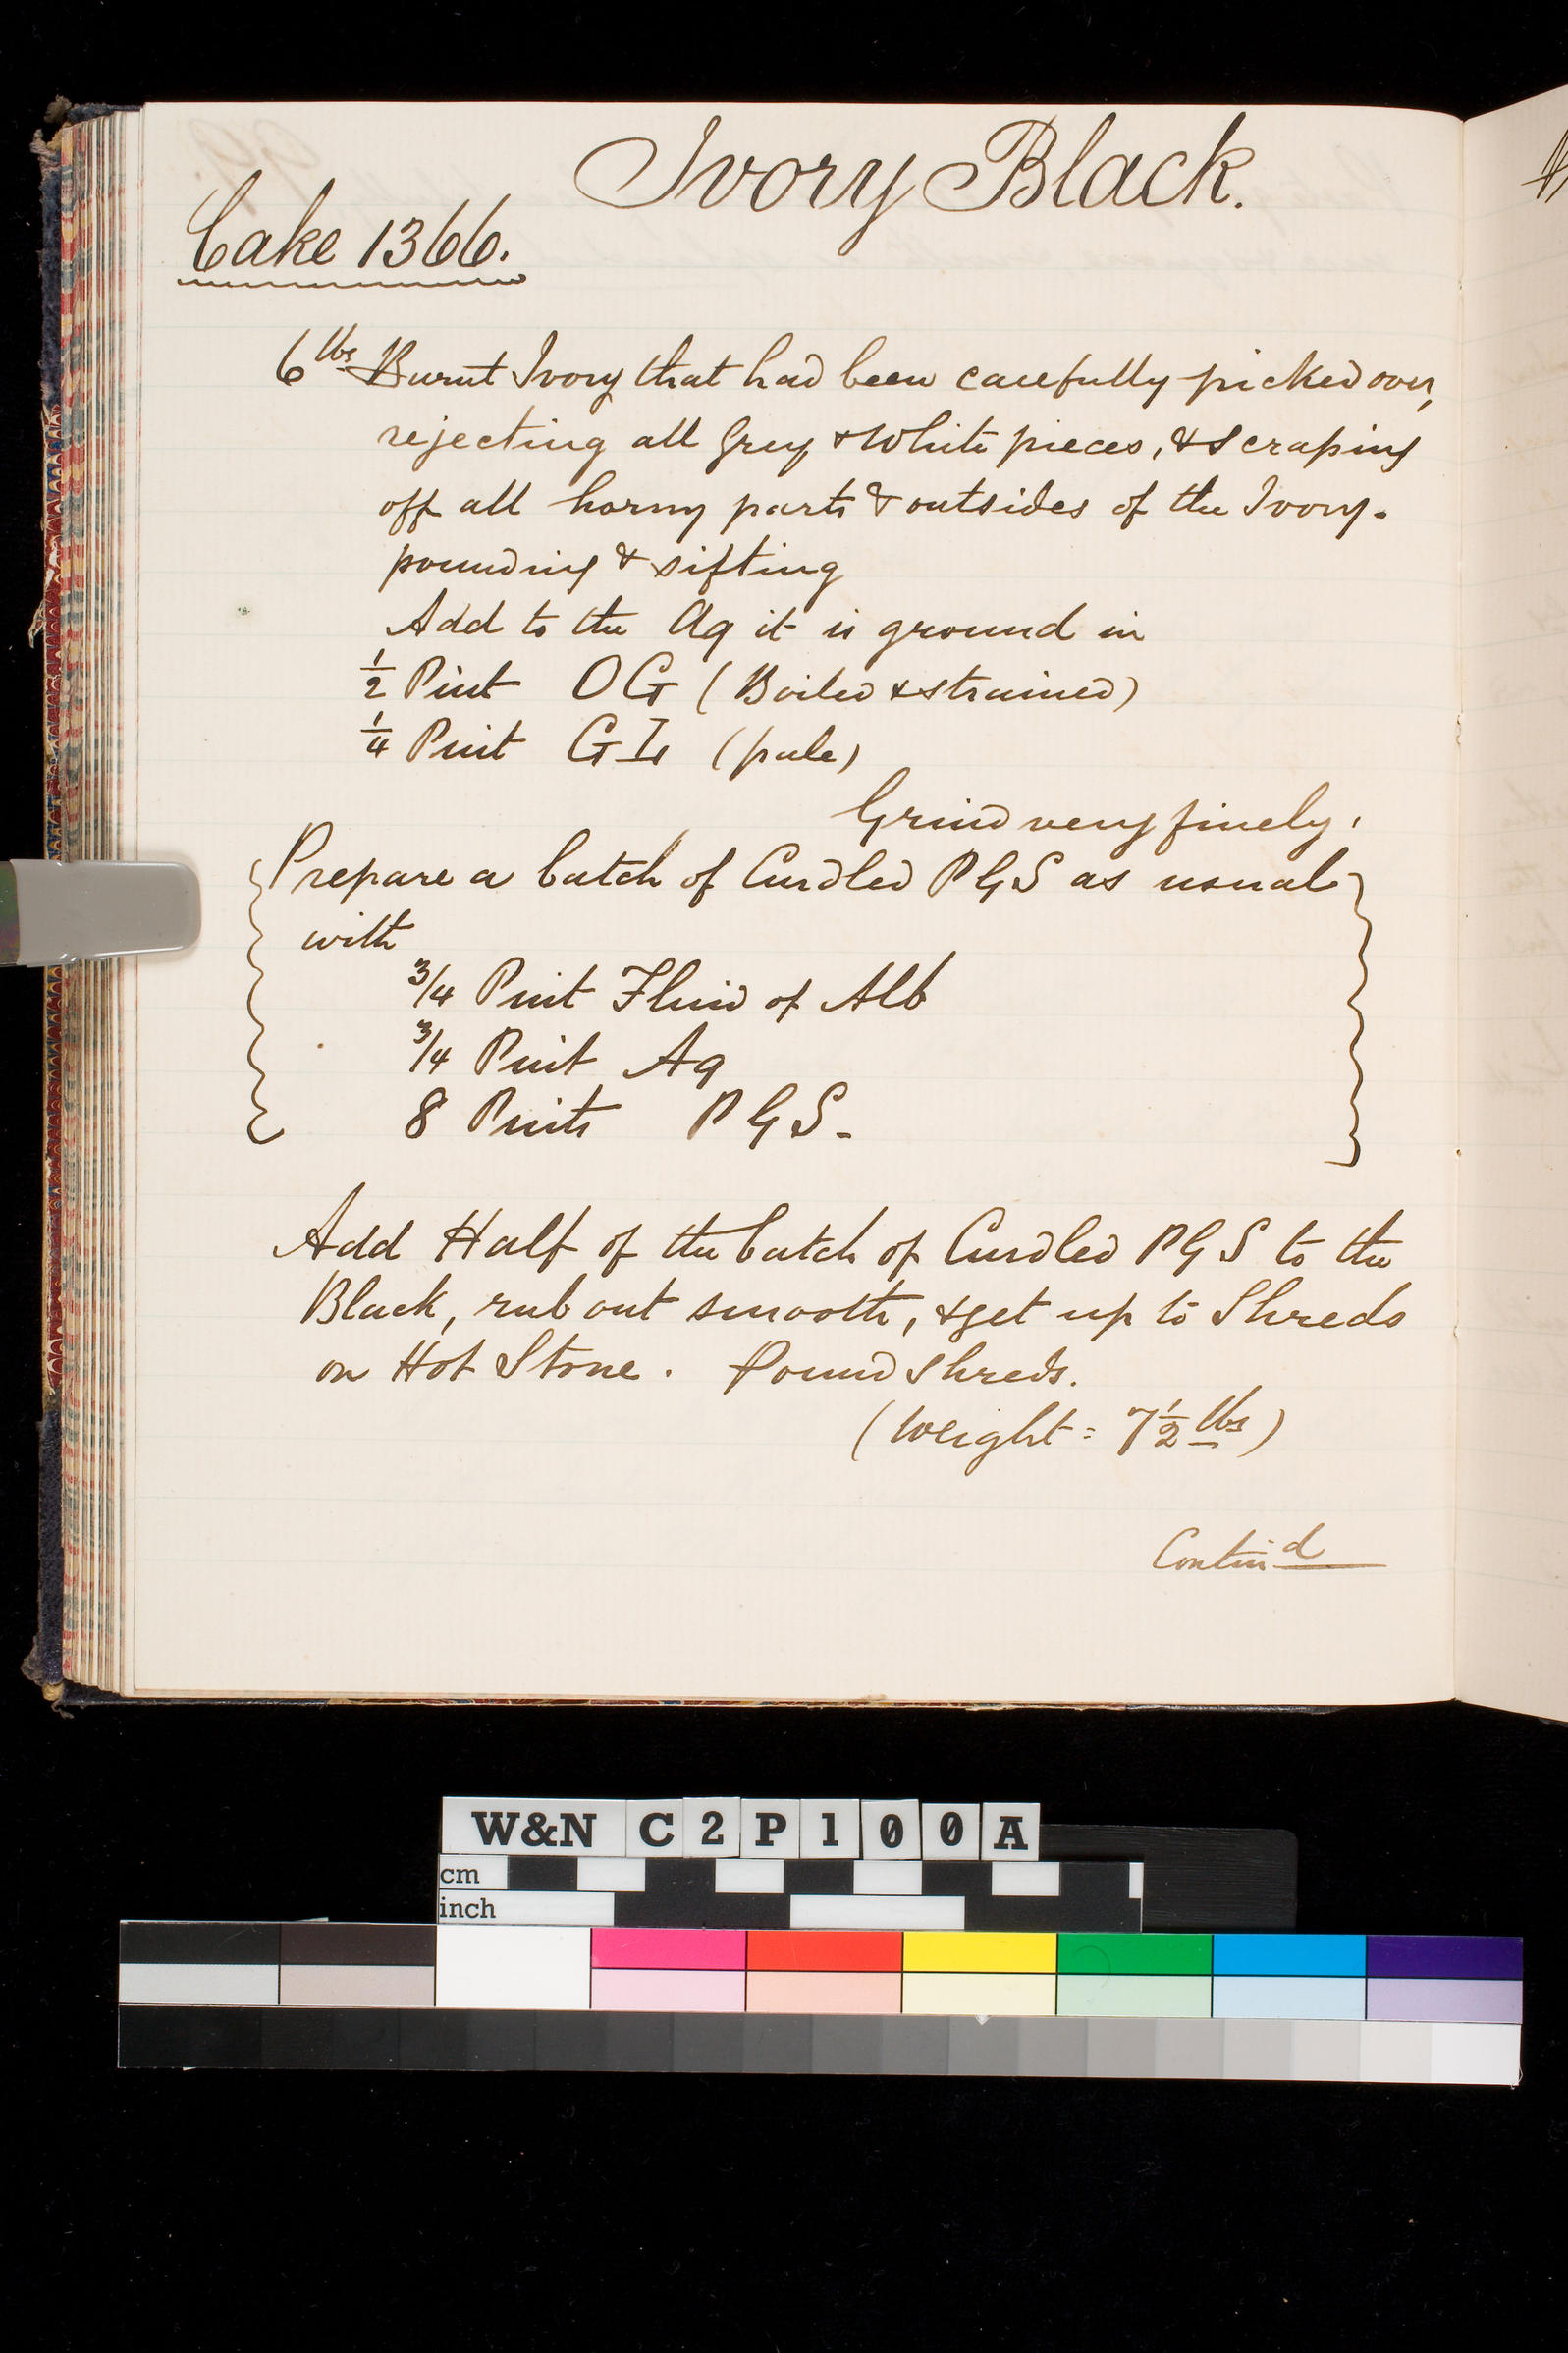 Ivory Black.
Cake 1366.
6 lbs Burnt Ivory that had been carefully picked over,
rejecting all Grey & White pieces, & scraping
off all horny parts & outsides of the Ivory.
pounding & sifting
Add to the Aq it is ground in
1/2 Pint OG (Boiled & strained)
1/4 Pint GI (pale)
Grind very finely.
Prepare a batch of Curdled PGS as usual
with
3/4 Pint Fluid of Alb
3/4 Pint Aq
8 Pints PGS.
Add Half of the batch of Curdled PGS to the
Black, rub out smooth, & get up to Shreds
on Hot Stone. Pound Shreds.
(Weight = 7 1/2 lbs)
Contin'd
W&N C2P100A
cm
inch